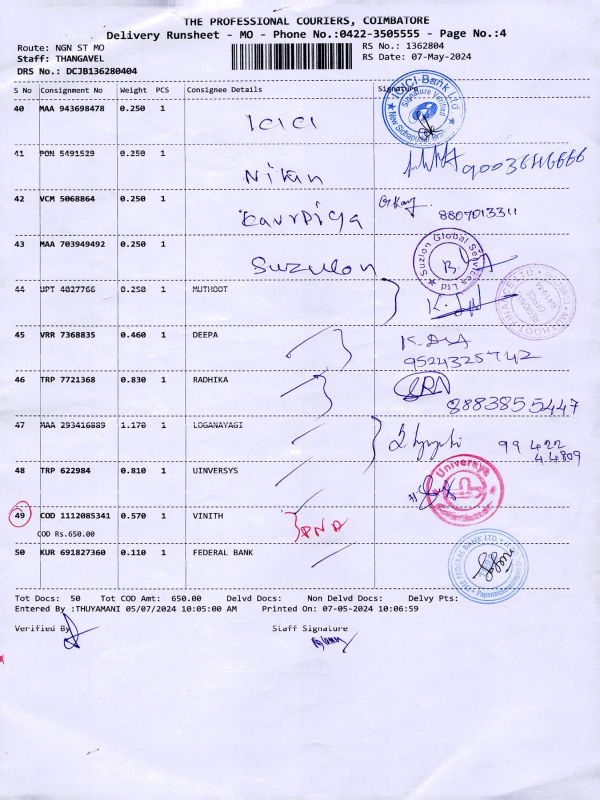 THE PROFESSIONAL COURIERS, COIMBATORE
Delivery Runsheet - MO - Phone No.:0422-3505555 - Page No.:4
Route: NGN ST MO RS No.: 1362804
Staff: THANGAVEL RS Date: 07-May-2024
DRS No.: DCJB136280404
S No Consignment No Weight PCS Consignee Details Signature
40 MAA 943698478 0.250 1 ICICI ICICI Bank Ltd Signature Verified
41 PON 5491529 0.250 1 Nitin 9003646666
42 VCM 5068864 0.250 1 8807013311
43 MAA 703949492 0.250 1 Suzulon Suzlon Global Services Ltd
44 UPT 4027766 0.250 1 MUTHOOT
45 VRR 7368835 0.460 1 DEEPA
9524325742
46 TRP 7721368 0.830 1 RADHIKA
8883855447
47 MAA 293416889 1.170 1 LOGANAYAGI 99 422
44809
48 TRP 622984 0.810 1 UINVERSYS Universys
49 COD 1112085341 0.570 1 VINITH PND
COD Rs.650.00
50 KUR 691827360 0.110 1 FEDERAL BANK THE FEDERAL BANK LTD.
Tot Docs: 50 Tot COD Amt: 650.00 Delvd Docs: Non Delvd Docs: Delvy Pts:
Entered By :THUYAMANI 05/07/2024 10:05:00 AM Printed On: 07-05-2024 10:06:59
Verified By Staff Signature